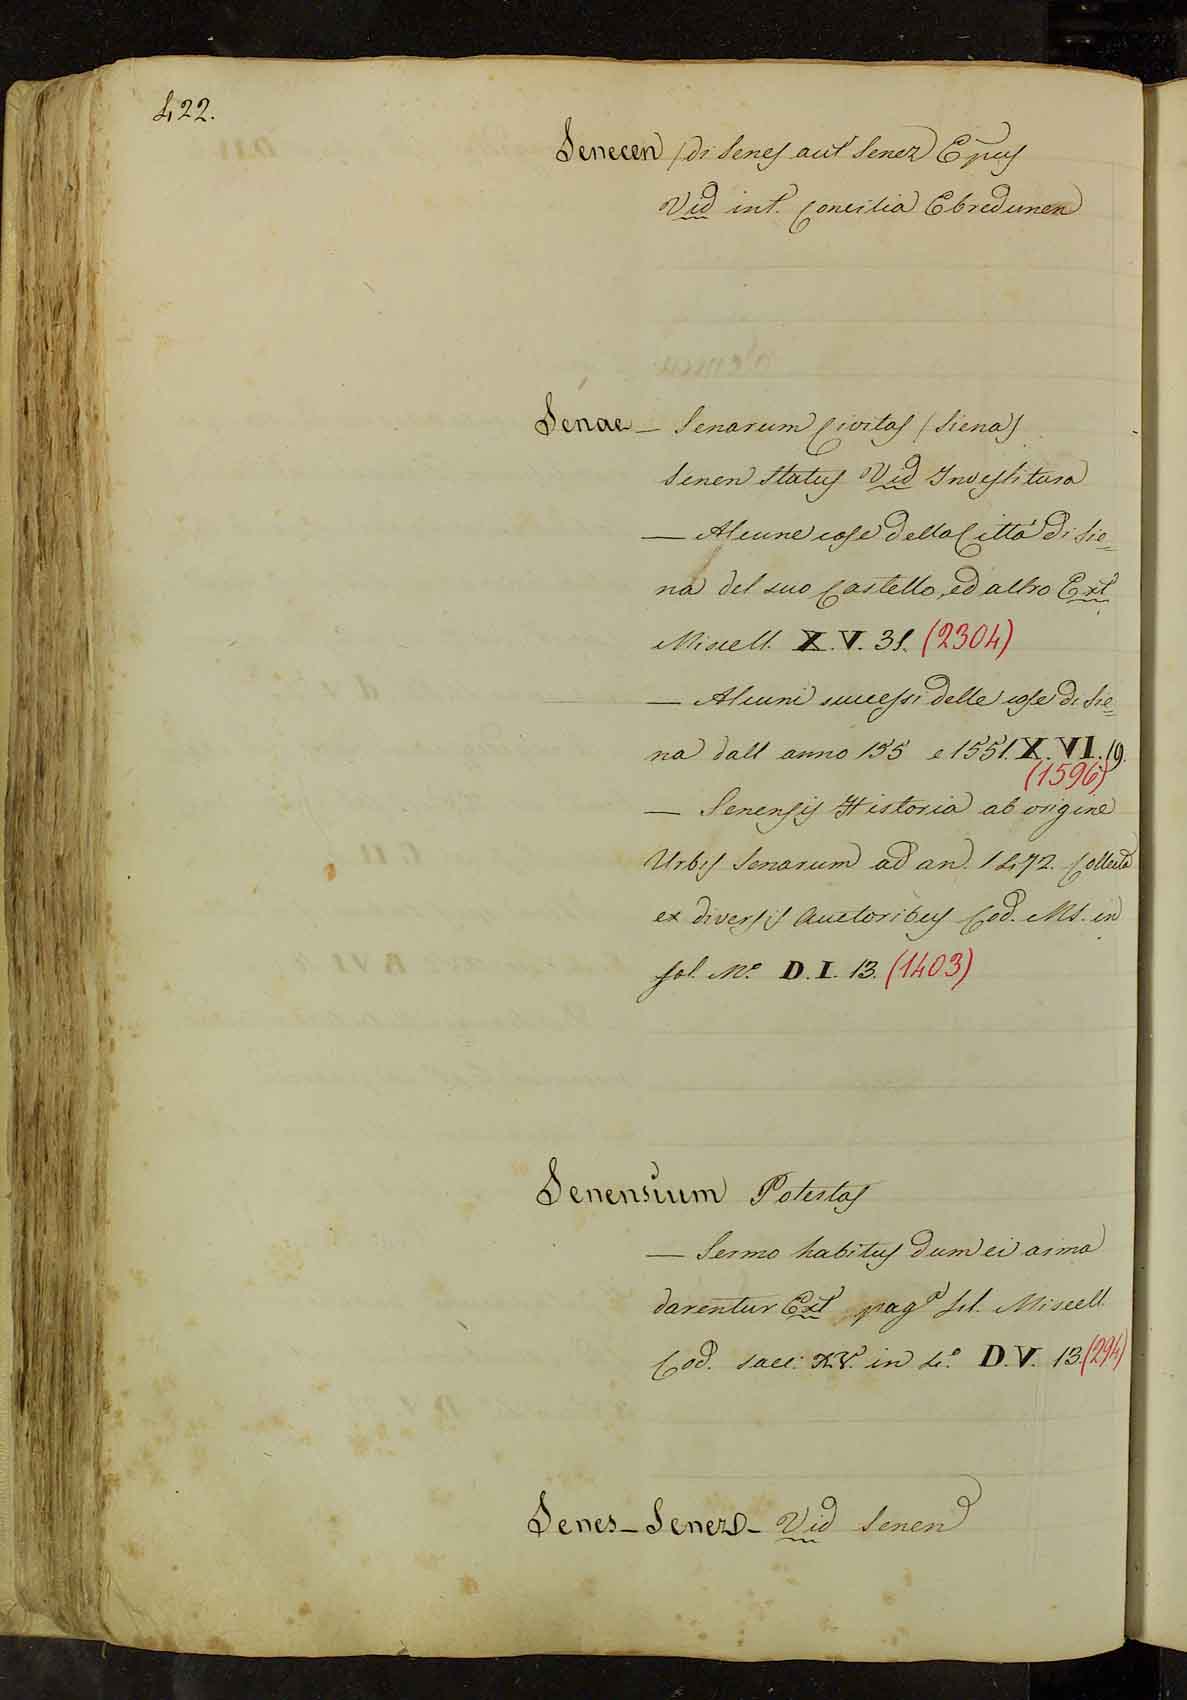 422.
Senecen (di Senes aut Senez) Epus
Vid int. Concilia Ebredunen
Senae — Senarum Civitas (Siena)
Senen Status Vid Investitura
— Alcune cose della Città di Sie=
na del suo Castello, ed altro Ext
Miscell. X.V. 31. (2304)
— Alcuni successi delle cose di Sie=
na dall anno 155 e 1551. X.VI.19.
(1596)
— Senensis Historia ab origine
Urbis Senarum ad an. 1472. Collecta
ex diversis Auctoribus Cod. Ms. in
fol. Mº D.I. 13. (1403)
Senensium Potestas
— Sermo habitus dum ei arma
darentur Ext pagª Miscell.
Cod. saec. XV. in 4º. D.V. 13. (294)
Senes — Senez — Vid Senen